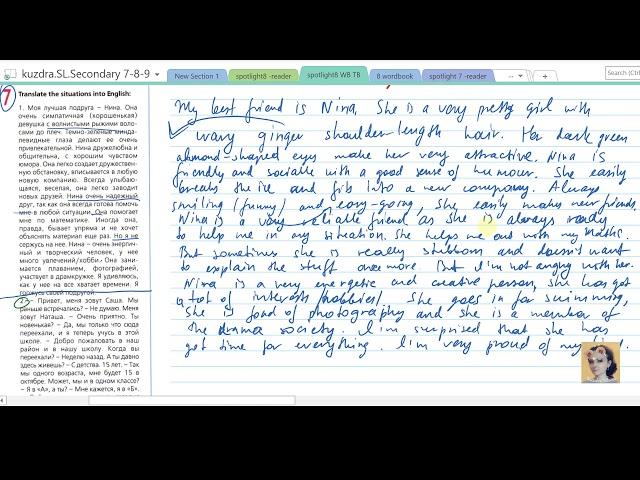 kuzdra.SL.Secondary 7-8-9
New Section 1
spotlight8 -reader
spotlight8 WB TB
8 wordbook
spotlight 7 -reader
Search (Ctrl
7
Translate the situations into English:
1. Моя лучшая подруга – Нина. Она
очень симпатичная (хорошенькая)
девушка с волнистыми рыжими воло-
сами до плеч. Темно-зеленые минда-
левидные глаза делают ее очень
привлекательной. Нина дружелюбна и
общительна, с хорошим чувством
юмора. Она легко создает дружествен-
ную обстановку, вписывается в любую
новую компанию. Всегда улыбаю-
щаяся, веселая, она легко заводит
новых друзей. Нина очень надежный
друг, так как она всегда готова помочь
мне в любой ситуации. Она помогает
мне по математике. Иногда она,
правда, бывает упряма и не хочет
объяснять материал еще раз. Но я не
сержусь на нее. Нина – очень энергич-
ный и творческий человек, у нее
много увлечений/хобби. Она зани-
мается плаванием, фотографией,
участвует в драмкружке. Я удивляюсь,
как у нее на все хватает времени. Я
горжусь своей подругой.
2. – Привет, меня зовут Саша. Мы
раньше встречались? – Не думаю. Меня
зовут Наташа. – Очень приятно. Ты
новенькая? – Да, мы только что сюда
переехали, и я теперь учусь в этой
школе. – Добро пожаловать в наш
район и в нашу школу. Когда вы
переехали? – Неделю назад. А ты давно
здесь живешь? – С детства. 15 лет. – Так
мы одного возраста, мне будет 15 в
октябре. Может, мы и в одном классе?
– Я в «А», а ты? – Мне кажется, я в «Б».
My best friend is Nina. She is a very pretty girl with
wavy ginger shoulder-length hair. Her dark green
almond-shaped eyes make her very attractive. Nina is
friendly and sociable with a good sense of humour. She easily
breaks the ice and fits into a new company. Always
smiling (funny) and easy-going, she easily makes new friends.
Nina is a very reliable friend as she is always ready
to help me in any situation. She helps me out with my Maths.
But sometimes she is really stubborn and doesn't want
to explain the stuff once more. But I'm not angry with her.
Nina is a very energetic and creative person, she has got
a lot of interests/hobbies/. She goes in for swimming,
she is fond of photography and she is a member of
the drama society. I'm surprised that she has
got time for everything. I'm very proud of my